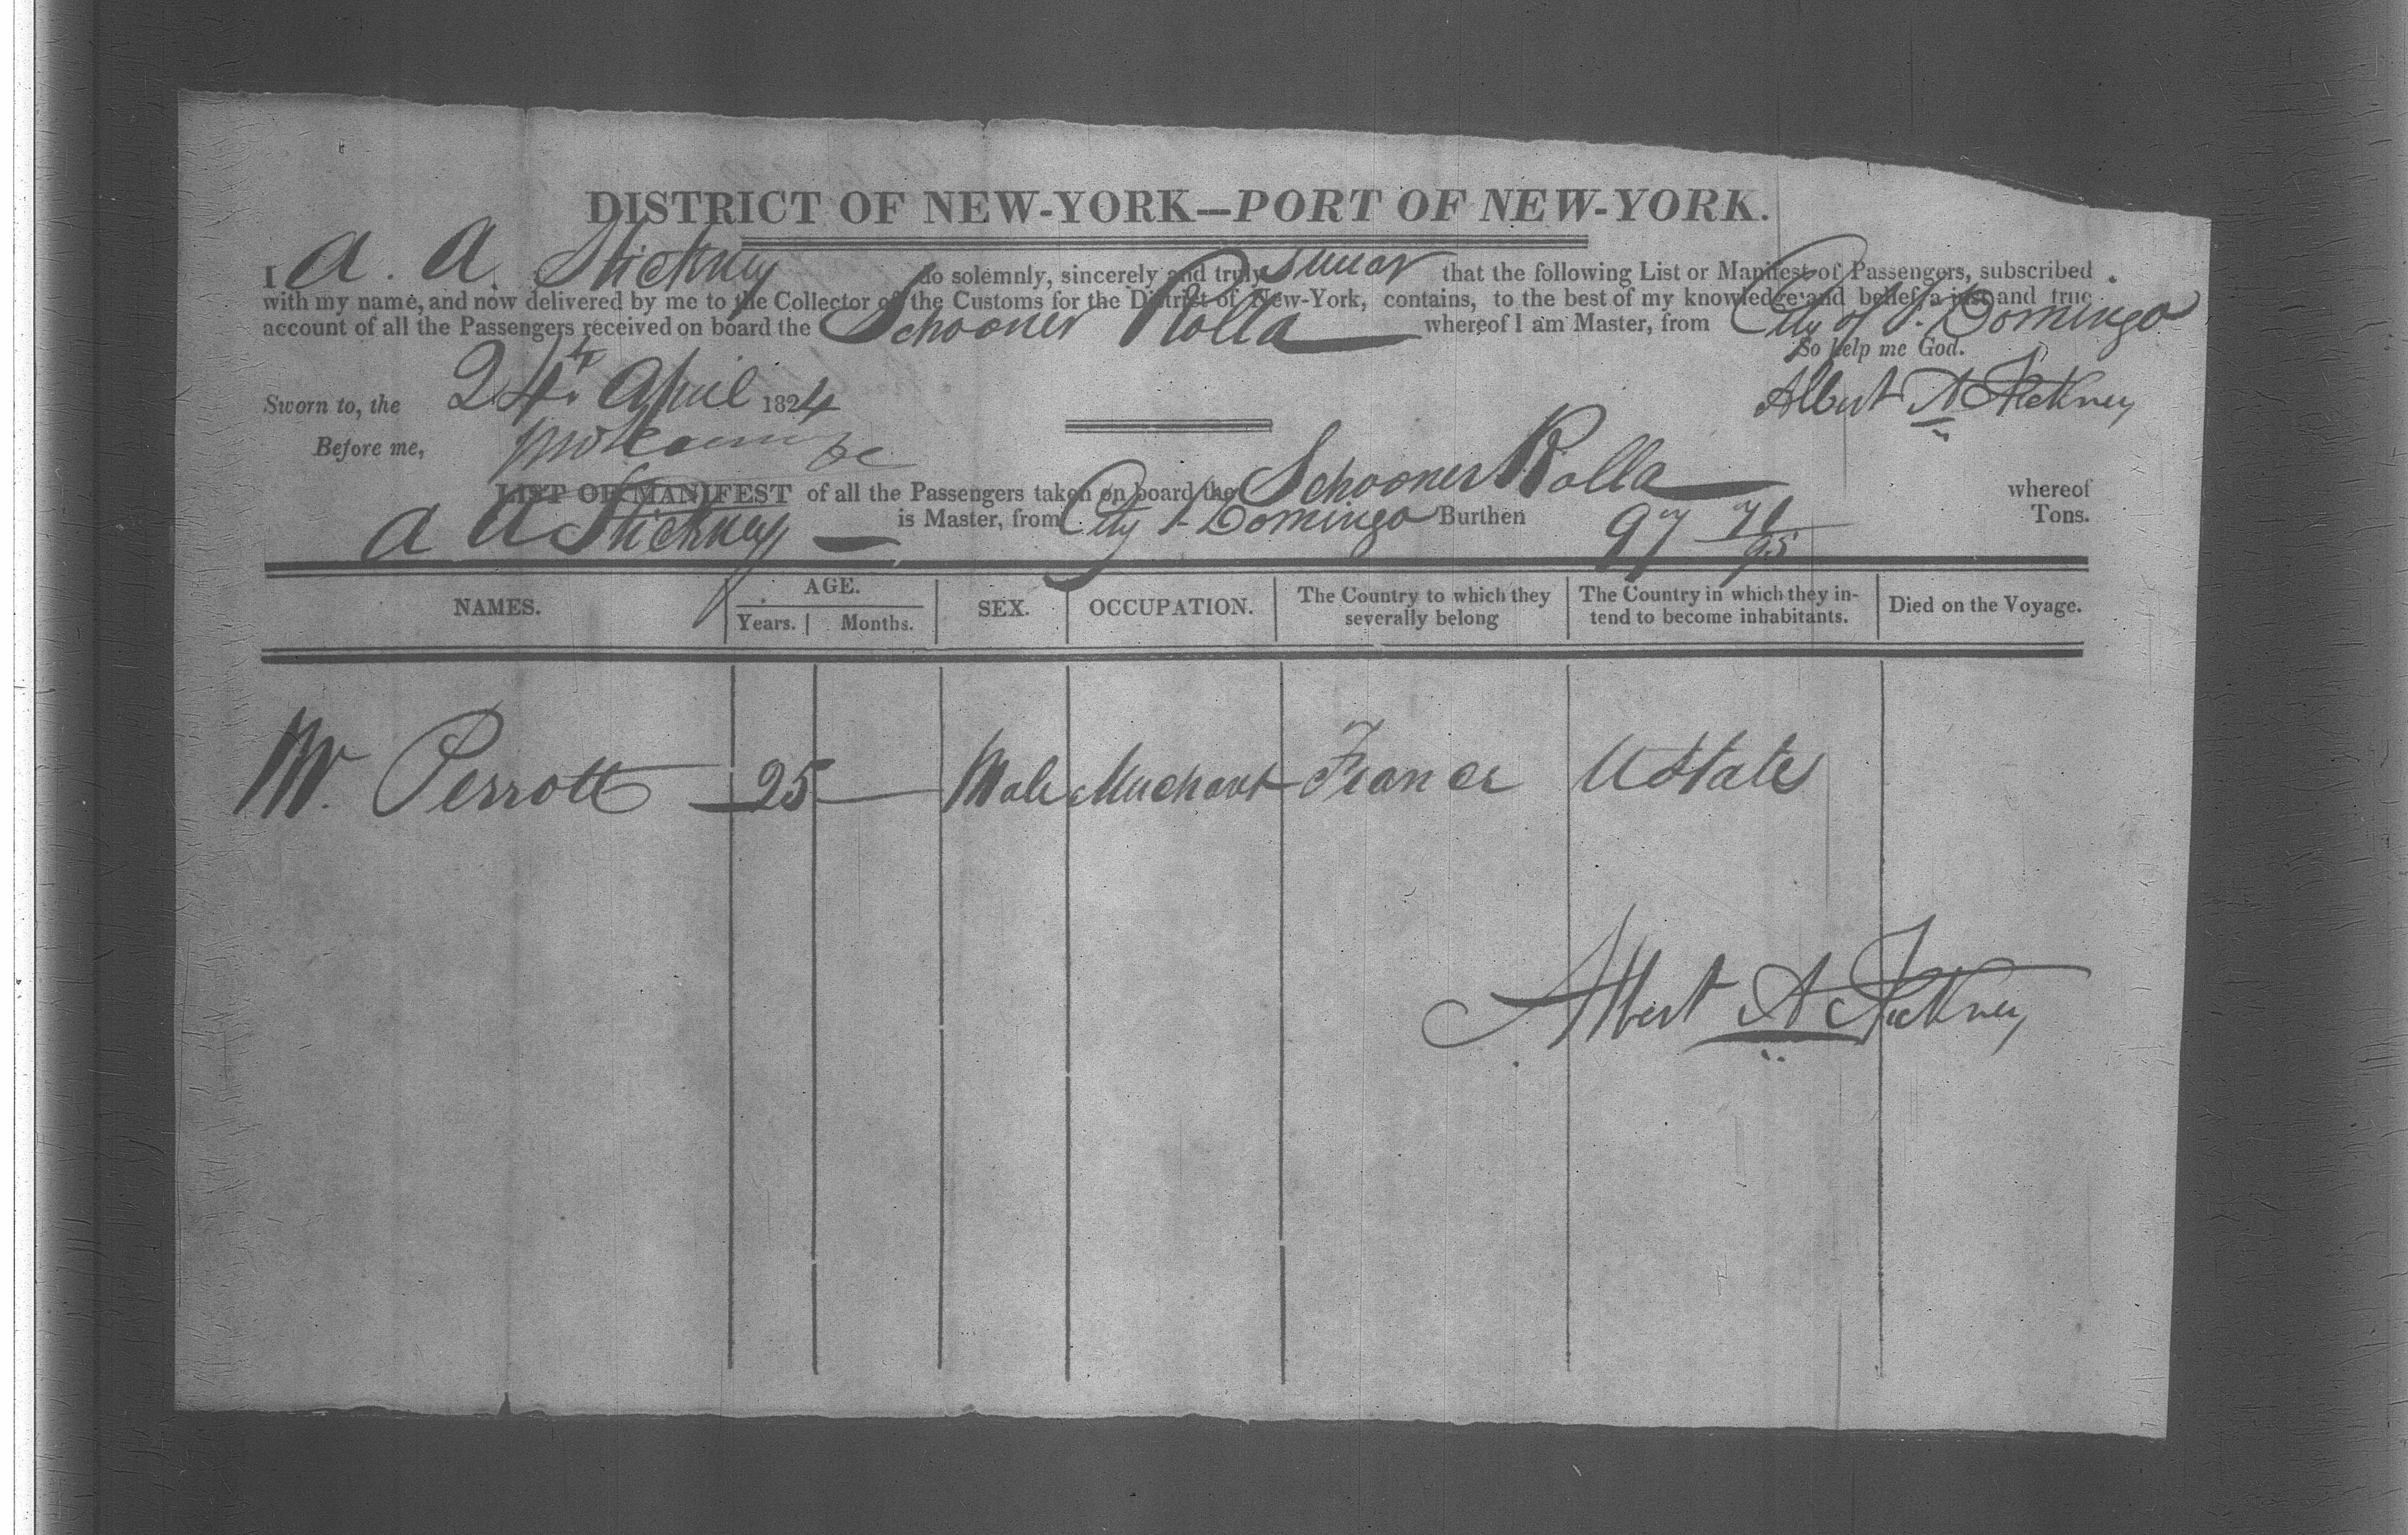 DISTRICT OF NEW-YORK—PORT OF NEW-YORK.
I A. A. Stickney do solemnly, sincerely and truly Swear that the following List or Manifest of Passengers, subscribed
with my name, and now delivered by me to the Collector of the Customs for the District of New-York, contains, to the best of my knowledge and belief, a just and true
account of all the Passengers received on board the Schooner Rolla whereof I am Master, from City of St. Domingo
So help me God.
Sworn to, the 24th April 1824 Albert A Stickney
Before me,
LIST OR MANIFEST of all the Passengers taken on board the Schooner Rolla whereof
A A Stickney is Master, from City St Domingo Burthen 97 71/95 Tons.
NAMES. AGE. Years. Months. SEX. OCCUPATION. The Country to which they severally belong The Country in which they intend to become inhabitants. Died on the Voyage.
Mr. Perrott 25 Male Merchant France U States
Albert A Stickney